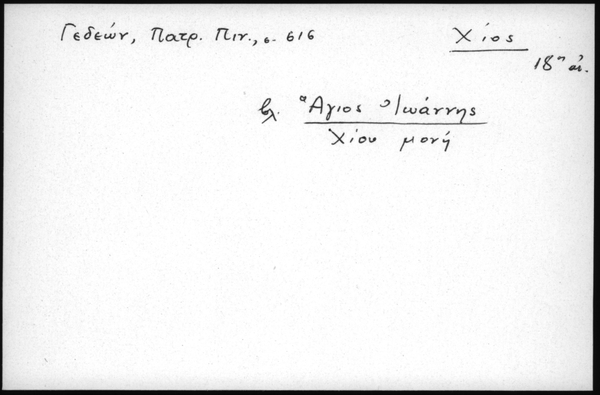 Γεδεών, Πατρ. Πιν., σ. 616
Χίος
18ος αι.
βλ. Ἅγιος Ἰωάννης
Χίου μονή